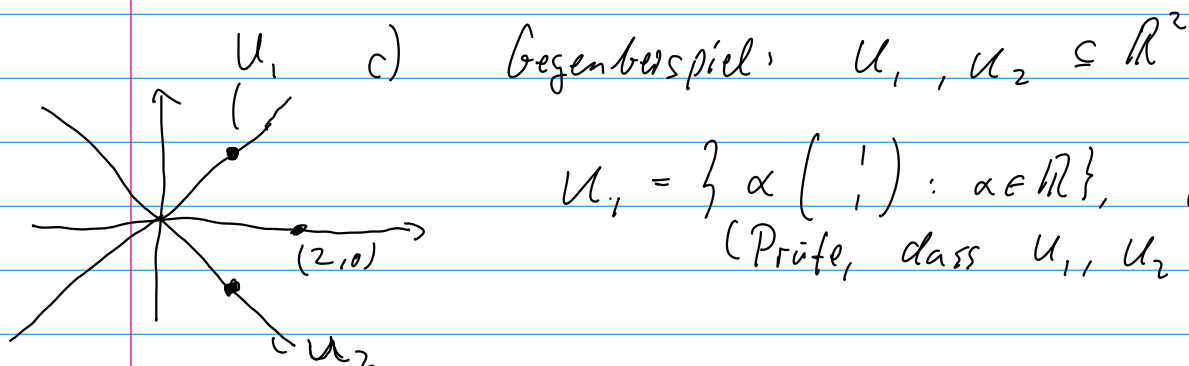 U₁ c) Gegenbeispiel: U₁, U₂ ⊆ ℝ²
U₁ = { α (1 1) : α ∈ ℝ},
(2,0) (Prüfe, dass U₁, U₂
U₂